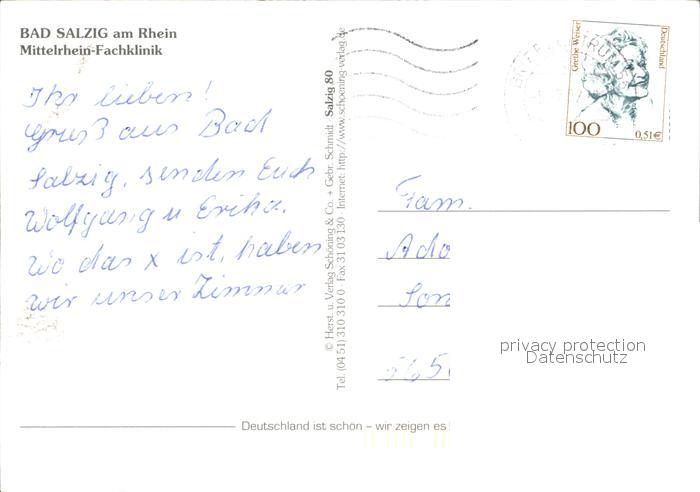 BAD SALZIG am Rhein
Mittelrhein-Fachklinik
Ihr lieben!
Gruß aus Bad
Salzig, senden Euch
Wolfgang u Erika.
Wo das x ist, haben
wir unser Zimmer
© Herst. u. Verlag Schöning & Co. + Gebr. Schmidt Salzig 80
Tel. (04 51) 310 310 0 · Fax 31 03 130 · Internet: http://www.schoening-verlag.de
Grethe Weiser
Deutschland
100
0,51€
Fam.
Ado
Son
565
privacy protection
Datenschutz
Deutschland ist schön – wir zeigen es!